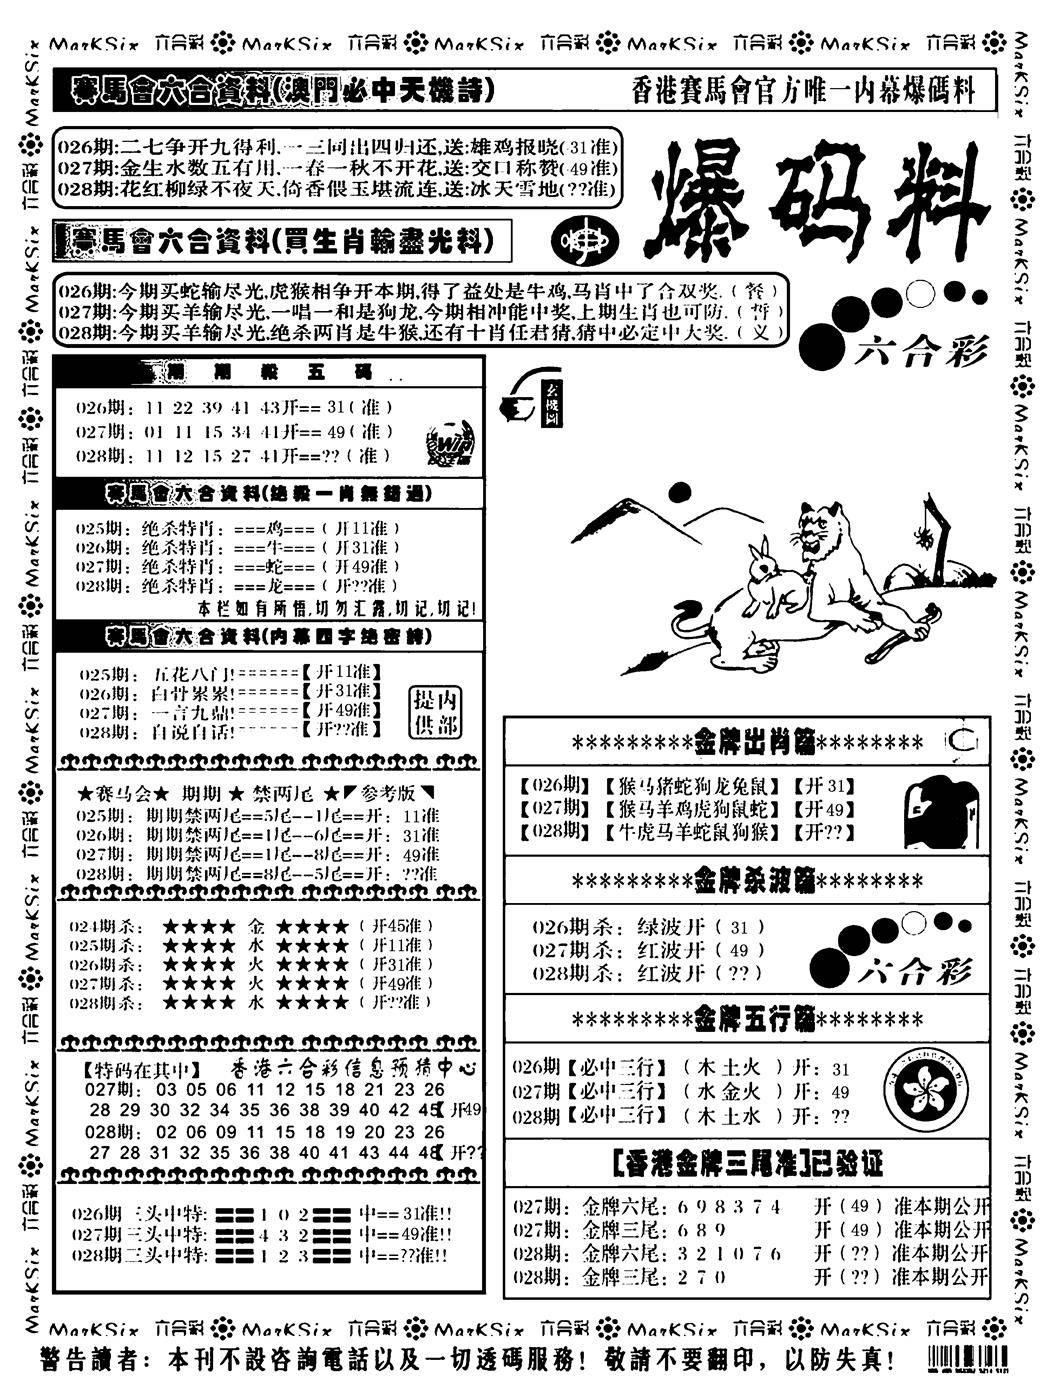 MarKSix 六合彩 MarKSix 六合彩 MarKSix 六合彩 MarKSix 六合彩 MarKSix 六合彩
賽馬會六合資料(澳門必中天機詩)
香港賽馬會官方唯一内幕爆碼料
026期:二七争开九得利,一三同出四归还,送:雄鸡报晓(31准)
027期:金生水数五有用,一春一秋不开花,送:交口称赞(49准)
028期:花红柳绿不夜天,倚香偎玉堪流连,送:冰天雪地(??准)
爆码料
賽馬會六合資料(買生肖輸盡光料)
026期:今期买蛇输尽光,虎猴相争开本期,得了益处是牛鸡,马肖中了合双奖.(餐)
027期:今期买羊输尽光,一唱一和是狗龙,今期相冲能中奖,上期生肖也可防.(誓)
028期:今期买羊输尽光,绝杀两肖是牛猴,还有十肖任君猜,猜中必定中大奖.(义)
六合彩
期期殺五碼
026期: 11 22 39 41 43开==31(准)
027期: 01 11 15 34 41开==49(准)
028期: 11 12 15 27 41开==??(准)
玄機圖
賽馬會六合資料(绝殺一肖無錯過)
025期: 绝杀特肖: ===鸡===(开11准)
026期: 绝杀特肖: ===牛===(开31准)
027期: 绝杀特肖: ===蛇===(开49准)
028期: 绝杀特肖: ===龙===(开??准)
本栏如有所悟,切勿汇露,切记,切记!
賽馬會六合資料(内幕四字绝密詩)
025期: 五花八门!======【开11准】
026期: 白骨累累!======【开31准】
027期: 一言九鼎!======【开49准】
028期: 自说自话!======【开??准】
提供内部
★赛马会★ 期期 ★ 禁两尾 ★参考版
025期: 期期禁两尾==5尾--1尾==开: 11准
026期: 期期禁两尾==1尾--6尾==开: 31准
027期: 期期禁两尾==1尾--8尾==开: 49准
028期: 期期禁两尾==8尾--5尾==开: ??准
024期杀: ★★★★ 金 ★★★★(开45准)
025期杀: ★★★★ 水 ★★★★(开11准)
026期杀: ★★★★ 火 ★★★★(开31准)
027期杀: ★★★★ 火 ★★★★(开49准)
028期杀: ★★★★ 水 ★★★★(开??准)
【特码在其中】 香港六合彩信息预猜中心
027期: 03 05 06 11 12 15 18 21 23 26
28 29 30 32 34 35 36 38 39 40 42 45【开49
028期: 02 06 09 11 15 18 16 20 23 26
27 28 31 32 35 36 38 40 41 43 44 48【开??
026期 三头中特: 1 0 2 中==31准!!
027期 三头中特: 4 3 2 中==49准!!
028期 三头中特: 1 2 3 中==??准!!
*********金牌出肖篇********
【026期】【猴马猪蛇狗龙兔鼠】【开31】
【027期】【猴马羊鸡虎狗鼠蛇】【开49】
【028期】【牛虎马羊蛇鼠狗猴】【开??】
*********金牌杀波篇********
026期杀: 绿波开(31)
027期杀: 红波开(49)
028期杀: 红波开(??)
六合彩
*********金牌五行篇********
026期【必中三行】(木土火)开: 31
027期【必中三行】(水金火)开: 49
028期【必中三行】(木土水)开: ??
[香港金牌三尾准]已验证
027期: 金牌六尾: 6 9 8 3 7 4 开(49)准本期公开
027期: 金牌三尾: 6 8 9 开(49)准本期公开
028期: 金牌六尾: 3 2 1 0 7 6 开(??)准本期公开
028期: 金牌三尾: 2 7 0 开(??)准本期公开
MarKSix 六合彩 MarKSix 六合彩 MarKSix 六合彩 MarKSix 六合彩 MarKSix 六合彩
警告讀者: 本刊不設咨詢電話以及一切透碼服務! 敬請不要翻印, 以防失真!